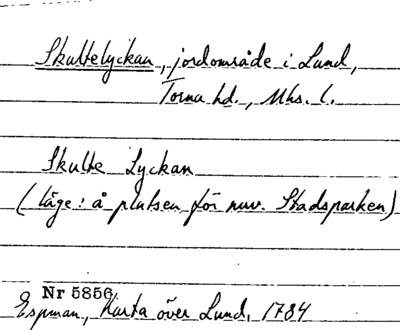 Skultelyckan, jordområde i Lund,
Torna hd., Mhs. l.
Skulte Lyckan
(läge: å platsen för nuv. Stadsparken)
Nr 5856
Espman, Karta över Lund, 1784